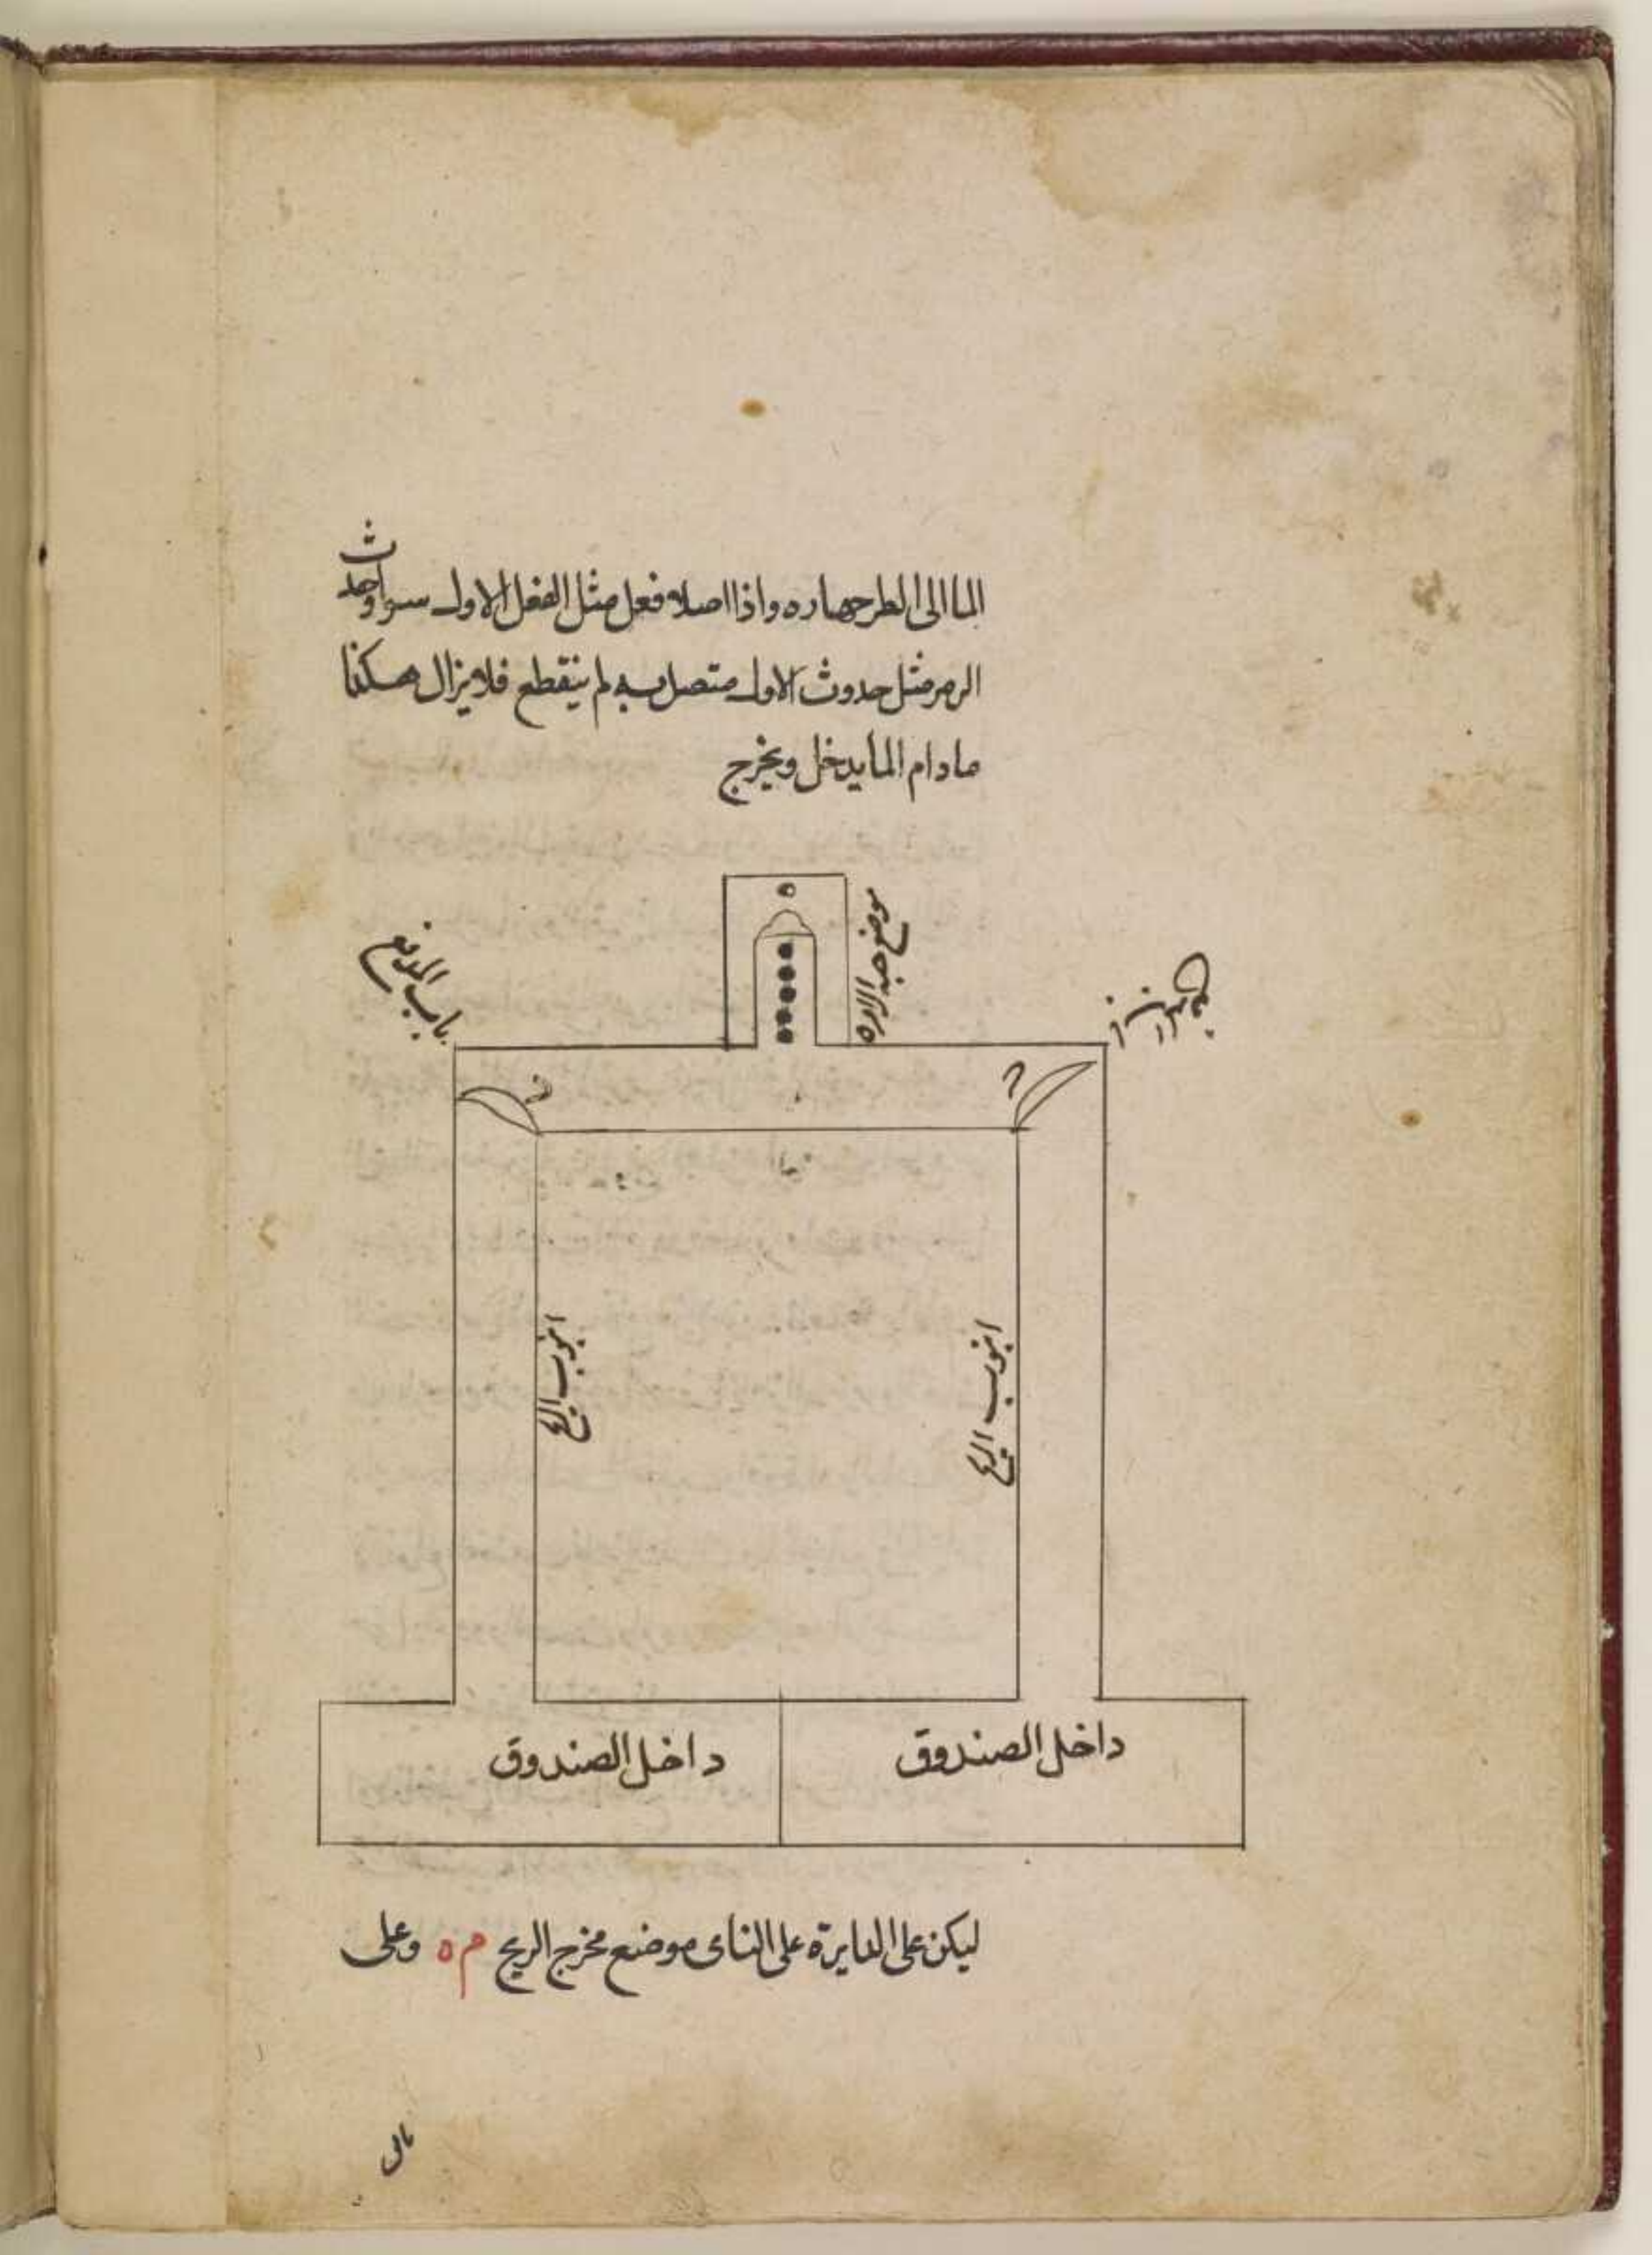 الما الى الطرجهاره واذا امتلاه فعل مثل الفعل الاول سوا وحدث
الزمر مثل حدوث الاول متصل به لم ينقطع فلا يزال هكذا
مادام الما يدخل ويخرج
باب المدفع
موضع
انبوب الريح
انبوب الريح
داخل الصندوق
داخل الصندوق
ليكن على الدايرة على الناى موضع مخرج الريح م ه وعلى